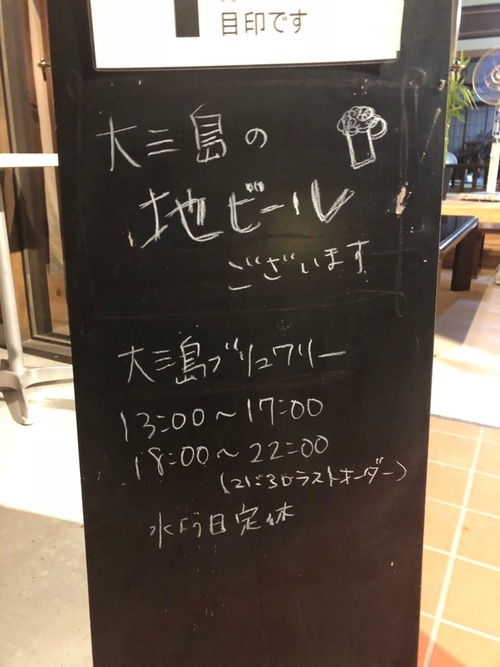 目印です
大三島の
地ビール
ございます
大三島ブリュワリー
13:00〜17:00
18:00〜22:00
(21:30ラストオーダー)
水よう日定休